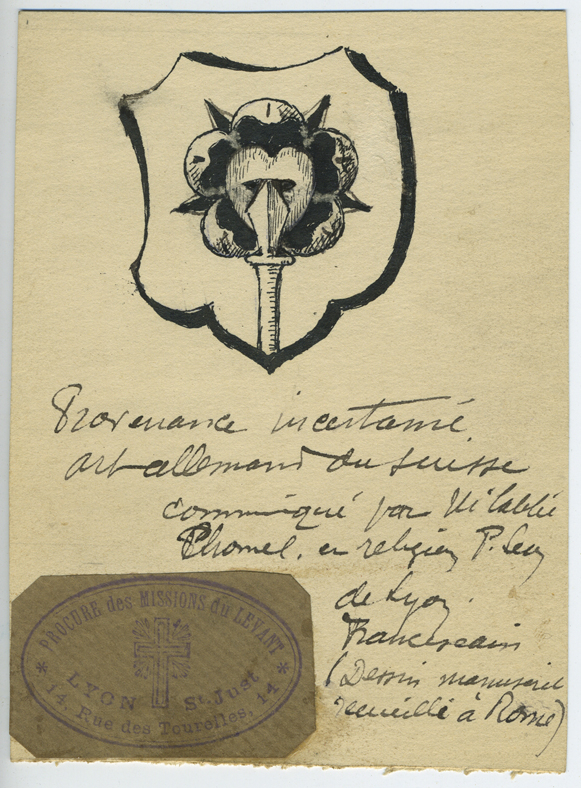 Provenance incertaine
art allemand ou suisse
communiqué par M l'abbé
Phomel. en religion P. Leon
de Lyon.
Franciscain
(Dessin manuscrit
recueilli à Rome)
* PROCURE des MISSIONS du LEVANT *
LYON St Just
14, Rue des Tourelles, 14